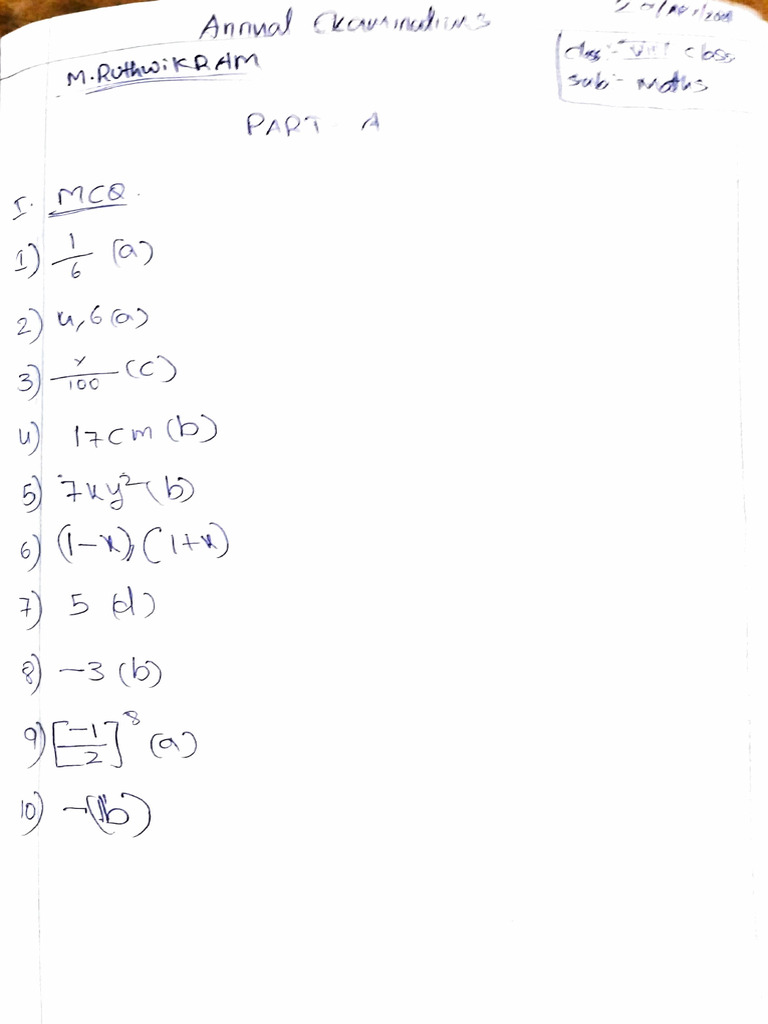 Annual Examinations
M. RUTHWIKRAM
class :- VIII class
sub :- Maths
PART - A
I. MCQ.
1) 1/6 (a)
2) 4,6 (a)
3) x/100 (c)
4) 17cm (b)
5) 7xy² (b)
6) (1-x), (1+x)
7) 5 (d)
8) -3 (b)
9) [-1/2]⁸ (a)
10) (b)